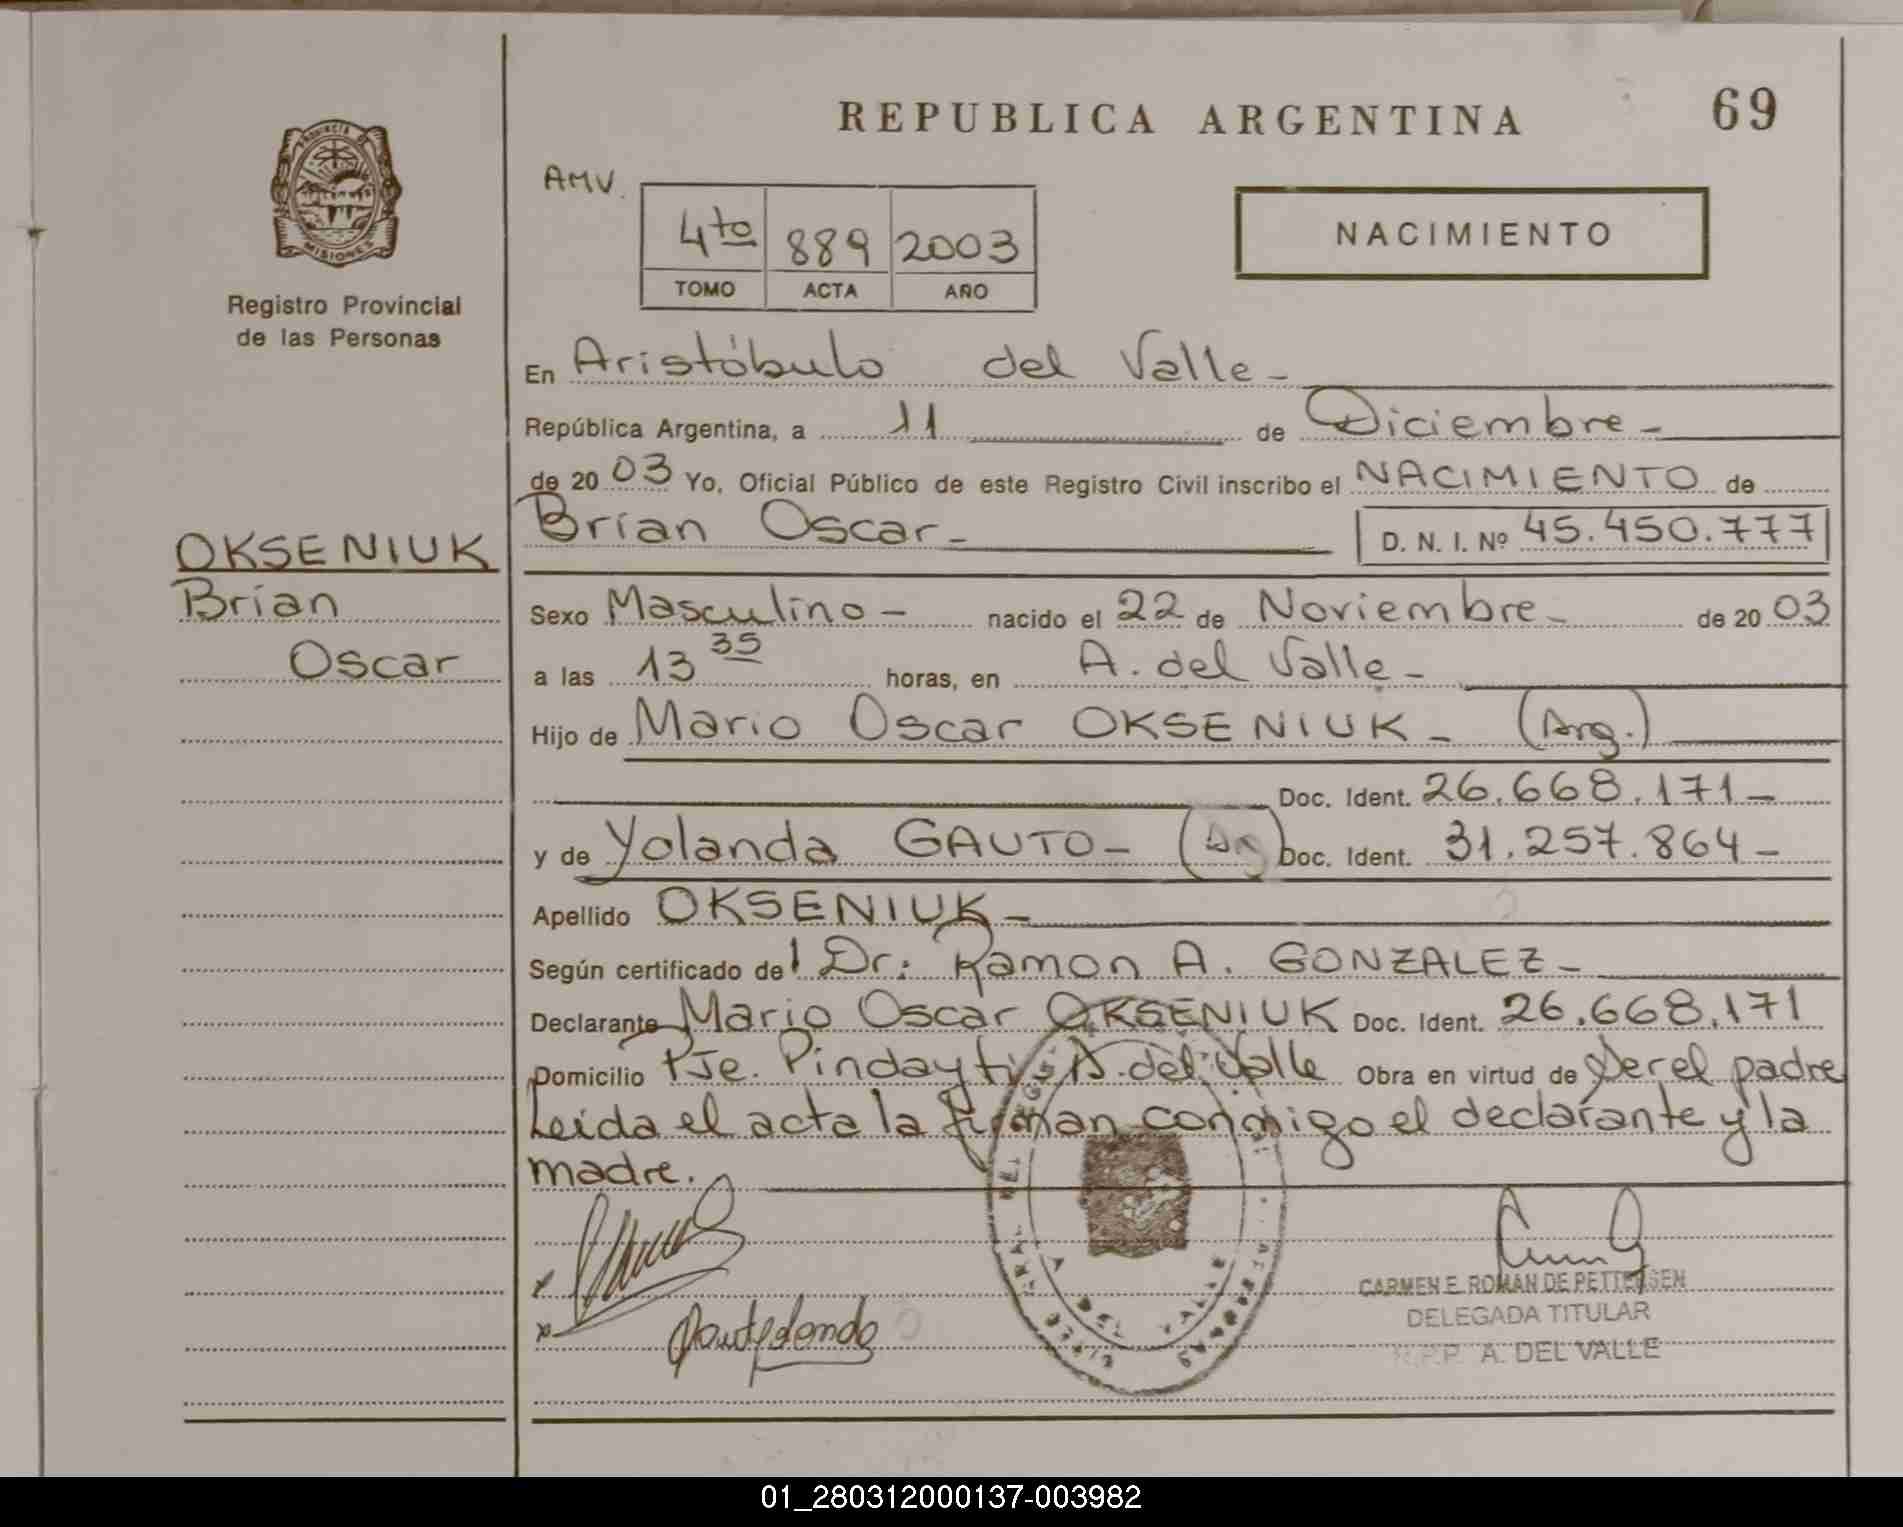 REPUBLICA ARGENTINA
69
PROVINCIA DE
MISIONES
Registro Provincial
de las Personas
AMV.
4to 889 2003
TOMO ACTA AÑO
NACIMIENTO
En Aristóbulo del Valle -
República Argentina, a 11 de Diciembre -
de 20 03 Yo, Oficial Público de este Registro Civil inscribo el NACIMIENTO de
Brian Oscar - D. N. I. Nº 45.450.777
OKSENIUK
Brian
Oscar
Sexo Masculino - nacido el 22 de Noviembre - de 20 03
a las 13 35 horas, en A. del Valle -
Hijo de Mario Oscar OKSENIUK - (Arg.)
Doc. Ident. 26.668.171 -
y de Yolanda GAUTO - (Arg) Doc. Ident. 31.257.864 -
Apellido OKSENIUK -
Según certificado del Dr: Ramon A. GONZALEZ -
Declarante Mario Oscar OKSENIUK Doc. Ident. 26.668.171
Domicilio Pje. Pindayti A. del Valle Obra en virtud de Ser el padre
Leída el acta la firman conmigo el declarante y la
madre.
CARMEN E. ROMAN DE PETTERSEN
DELEGADA TITULAR
R.P.P. A. DEL VALLE
01_280312000137-003982